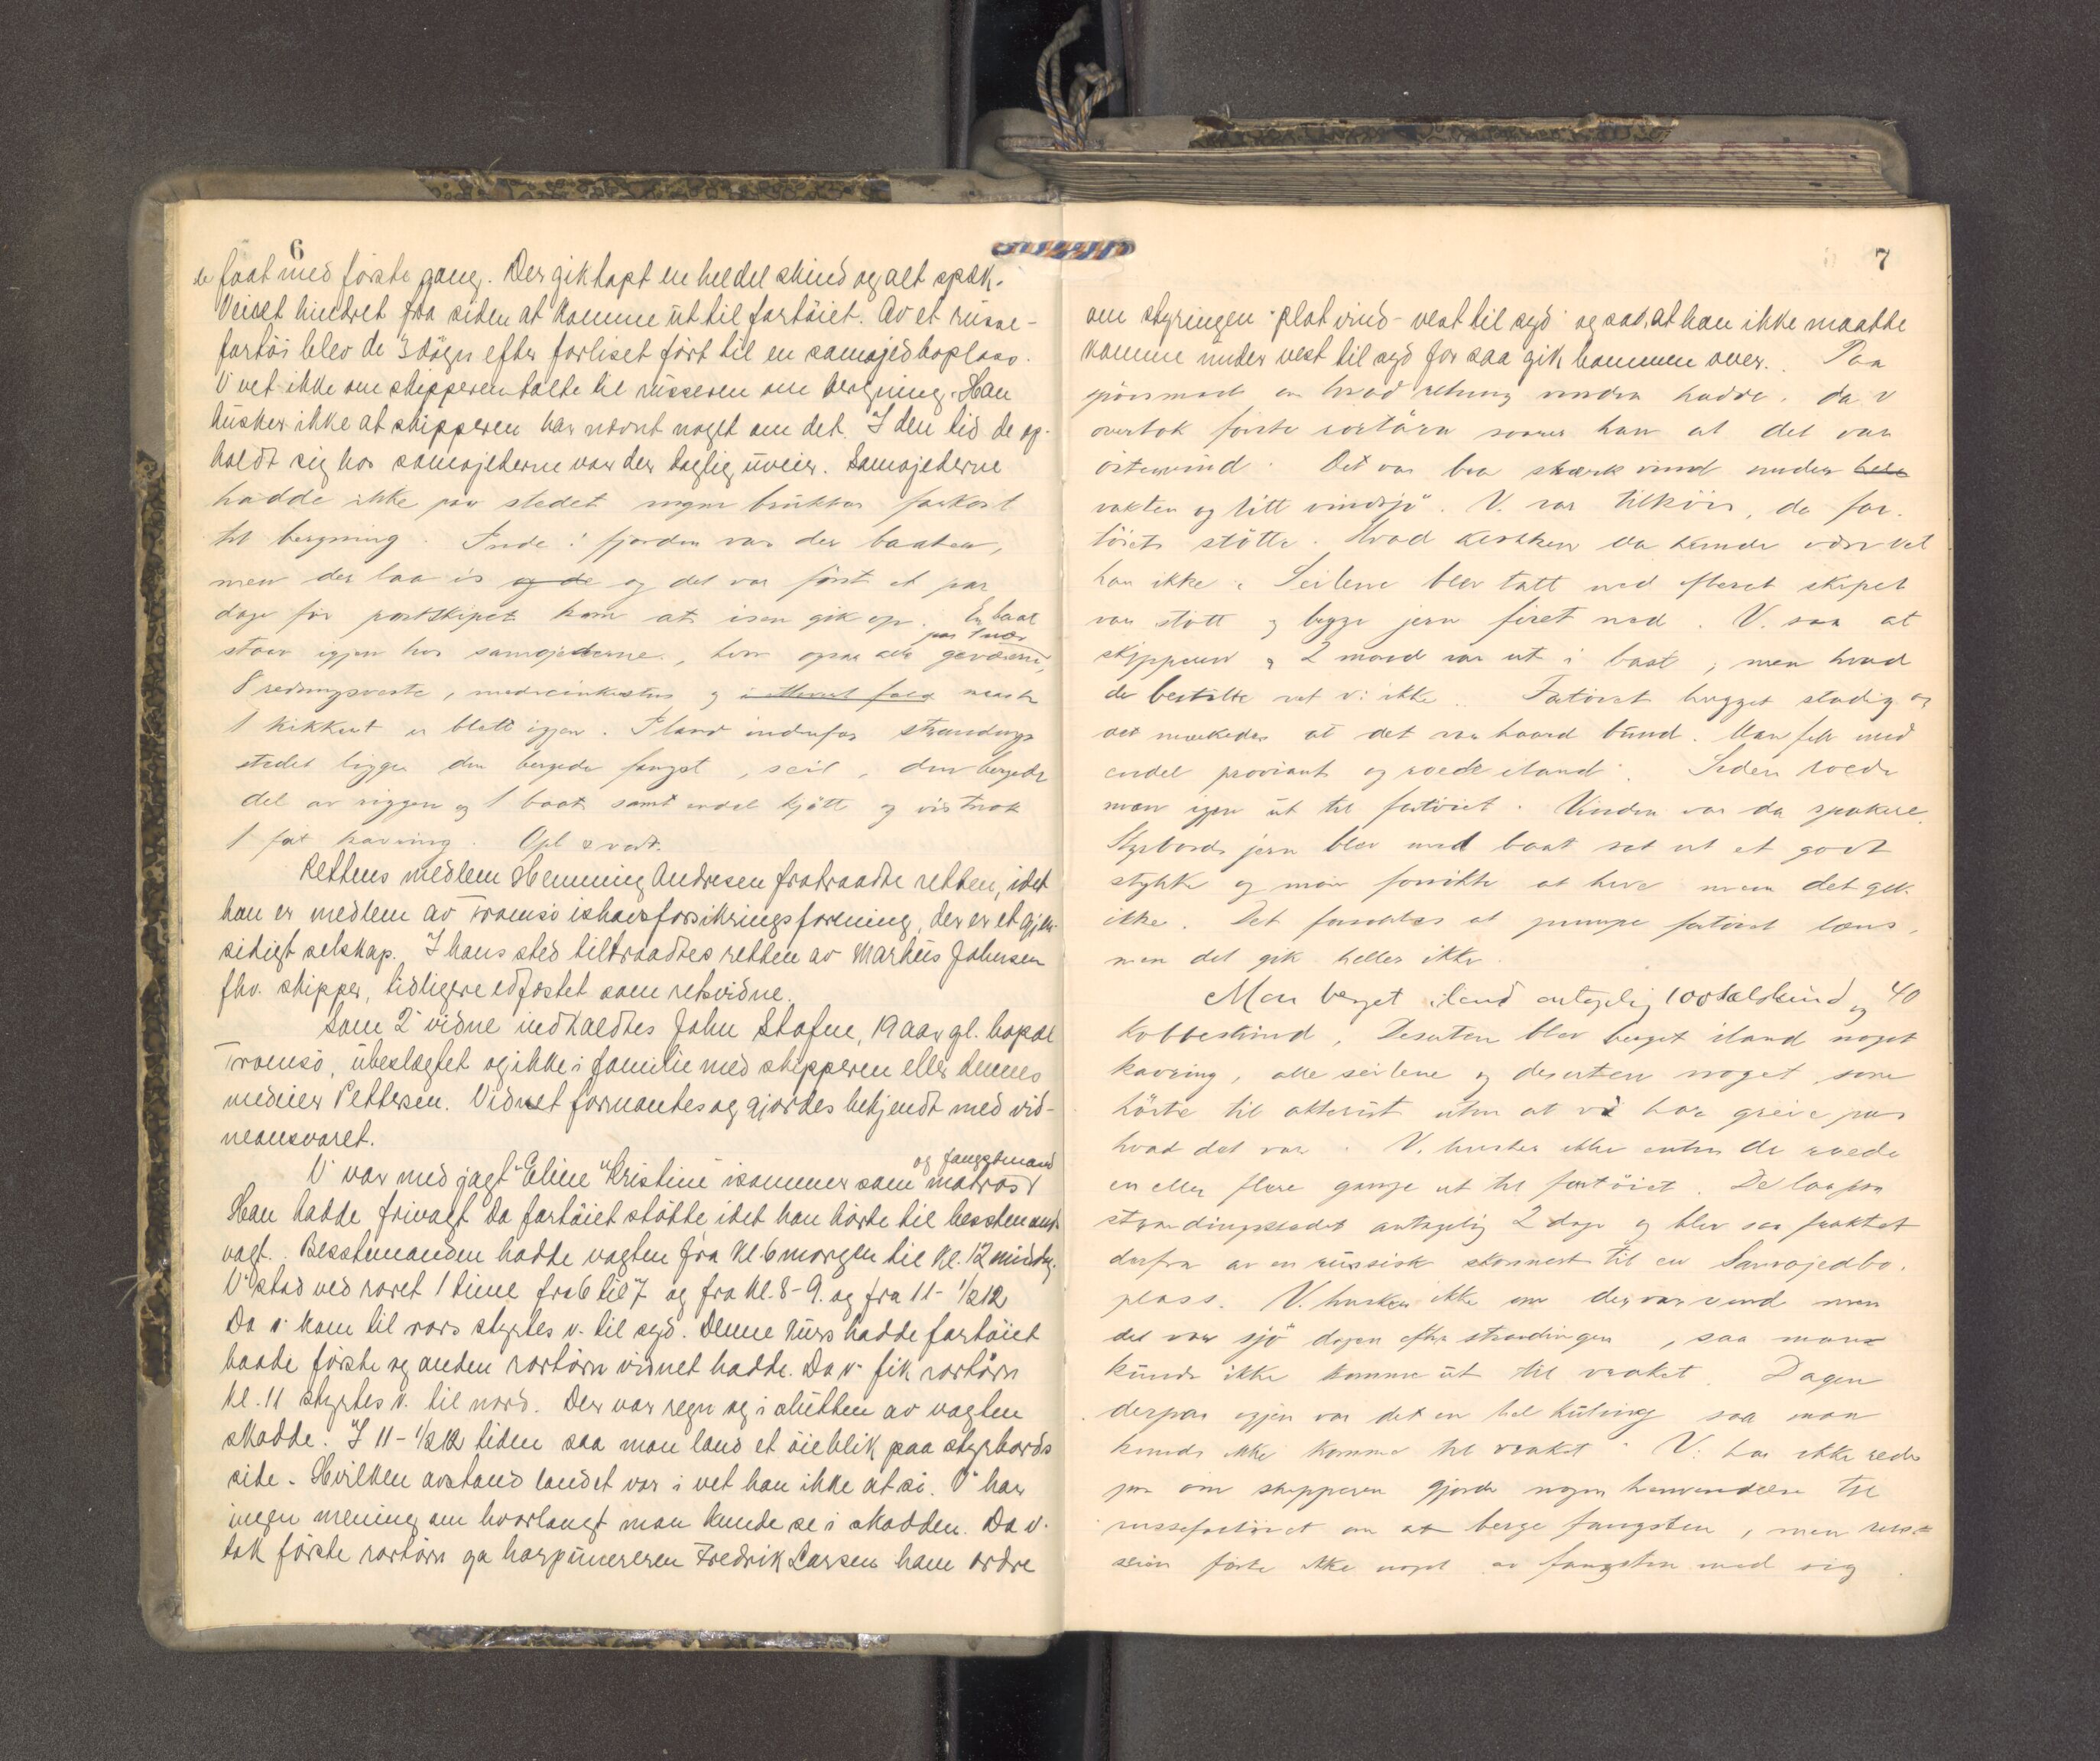 6
de faat med förste gang. Der gik tapt en hel del skind og alt spæk.
Veiret hindret fra siden at komme ut til fartöiet. Av et russe-
fartöi blev de 3 dögn efter forliset fört til en samojedboplass.
V vet ikke om skipperen talte til russeren om bergning. Han
husker ikke at skipperen har nævnt noget om det. I den tid de op-
holdt sig hos samojederne var der daglig uveir. Samojederne
hadde ikke paa stedet nogen brukbar farkost
til bergning. Inde i fjorden var der baater,
men der laa is og de og det var först et par
dage för postskipet kom at isen gik op. En baat
staar igjen hos samojederne, hvor ogsaa alle geværer, paa 1 nær
8 redningsveste, medicinkisten og maaske
1 kikkert er blett igjen. I land indenfor strandings
stedet ligger den bergede fangst, seil, den bergede
del av riggen og 1 baat samt endel kjött og vistnok
1 fat kavring. Opl & vedt.
Rettens medlem Henning Andresen fratraadte retten, idet
han er medlem av Tromsö ishavsforsikringsforening, der er et gjen-
sidigt selskap. I hans sted tiltraadtes retten av Markus Johnsen
fhv. skipper, tidligere edfæstet som retsvidne.
Som 2' vidne indkaldtes John Stafne, 19 aar gl. bopæl
Tromsö, ubeslægtet og ikke i familie med skipperen eller dennes
medeier Pettersen. Vidnet formantes og gjordes bekjendt med vid-
neansvaret.
V var med jagt "Eline Kristine" isommer som matros og fangstmand
Han hadde frivagt da fartöiet stötte idet han hörte til bestemands
vagt. Bestemanden hadde vagten fra kl. 6 morgen til kl. 12 middag.
V. stod ved roret 1 time fra 6 til 7 og fra kl. 8-9. og fra 11- 1/2 12
Da v. kom til rors styrtes v. til syd. Denne kurs hadde fartöiet
baade förste og anden rortörn vidnet hadde. Da v. fik rortörn
kl. 11 styrtes v. til nord. Der var regn og i slutten av vagten
skodde. I 11- 1/2 12 tiden saa man land et öieblik paa styrbords
side. Hvilken avstand landet var i vet han ikke at si. V har
ingen mening om hvorlangt man kunde se i skodden. Da v.
tok förste rortörn ga harpunereren Fredrik Larsen ham ordre
7
om styringen "plat vind - vest til syd" og sa, at han ikke maatte
komme under vest til syd for saa gik bommen over. Paa
spörsmaal om hvad retning vinden hadde, da v
overtok förste rortörn svarer han at det var
östenvind. Det var bra stærk vind under hele
vakten og litt vindsjö. V. var tilköis, da far-
töiet stötte. Hvad klokken da kunde være vet
han ikke. Seilene blev tatt ned efterat skipet
var stött og begge jern firet ned. V. saa at
skipperen og 2 mand var ut i baat, men hvad
de bestilte vet v. ikke. Fartöiet hugget stadig og
det merkedes at det var haard bund. Man fik med
endel proviant og rodde iland. Siden rodde
man igjen ut til fartöiet. Vinden var da spakere.
Styrbords jern blev med baat sat ut et godt
stykke og man forsökte at hive men det gik
ikke. Det forsöktes at pumpe fartöiet læns,
men det gik heller ikke.
Man berget iland antagelig 100 sælskind og 40
kobbeskind. Desuten blev berget iland noget
kavring, alle seilene og desuten noget, som
hörte til akterut uten at v. har greie paa
hvad det var. V. husker ikke enten de rodde
en eller flere gange ut til fartöiet. De laa paa
strandingsstedet antagelig 2 dage og blev saa fraktet
derfra av en russisk skonnert til en Samojedbo-
plass. V. husker ikke om der var vind men
det var sjö dagen efter strandingen, saa man
kunde ikke komme ut til vraket. Dagen
derpaa igjen var det en hel kuling saa man
kunde ikke komme til vraket. V. har ikke rede
paa om skipperen gjorde nogen henvendelse til
russefartöiet om at berge fangsten, men russe-
ren förte ikke noget av fangsten med sig.